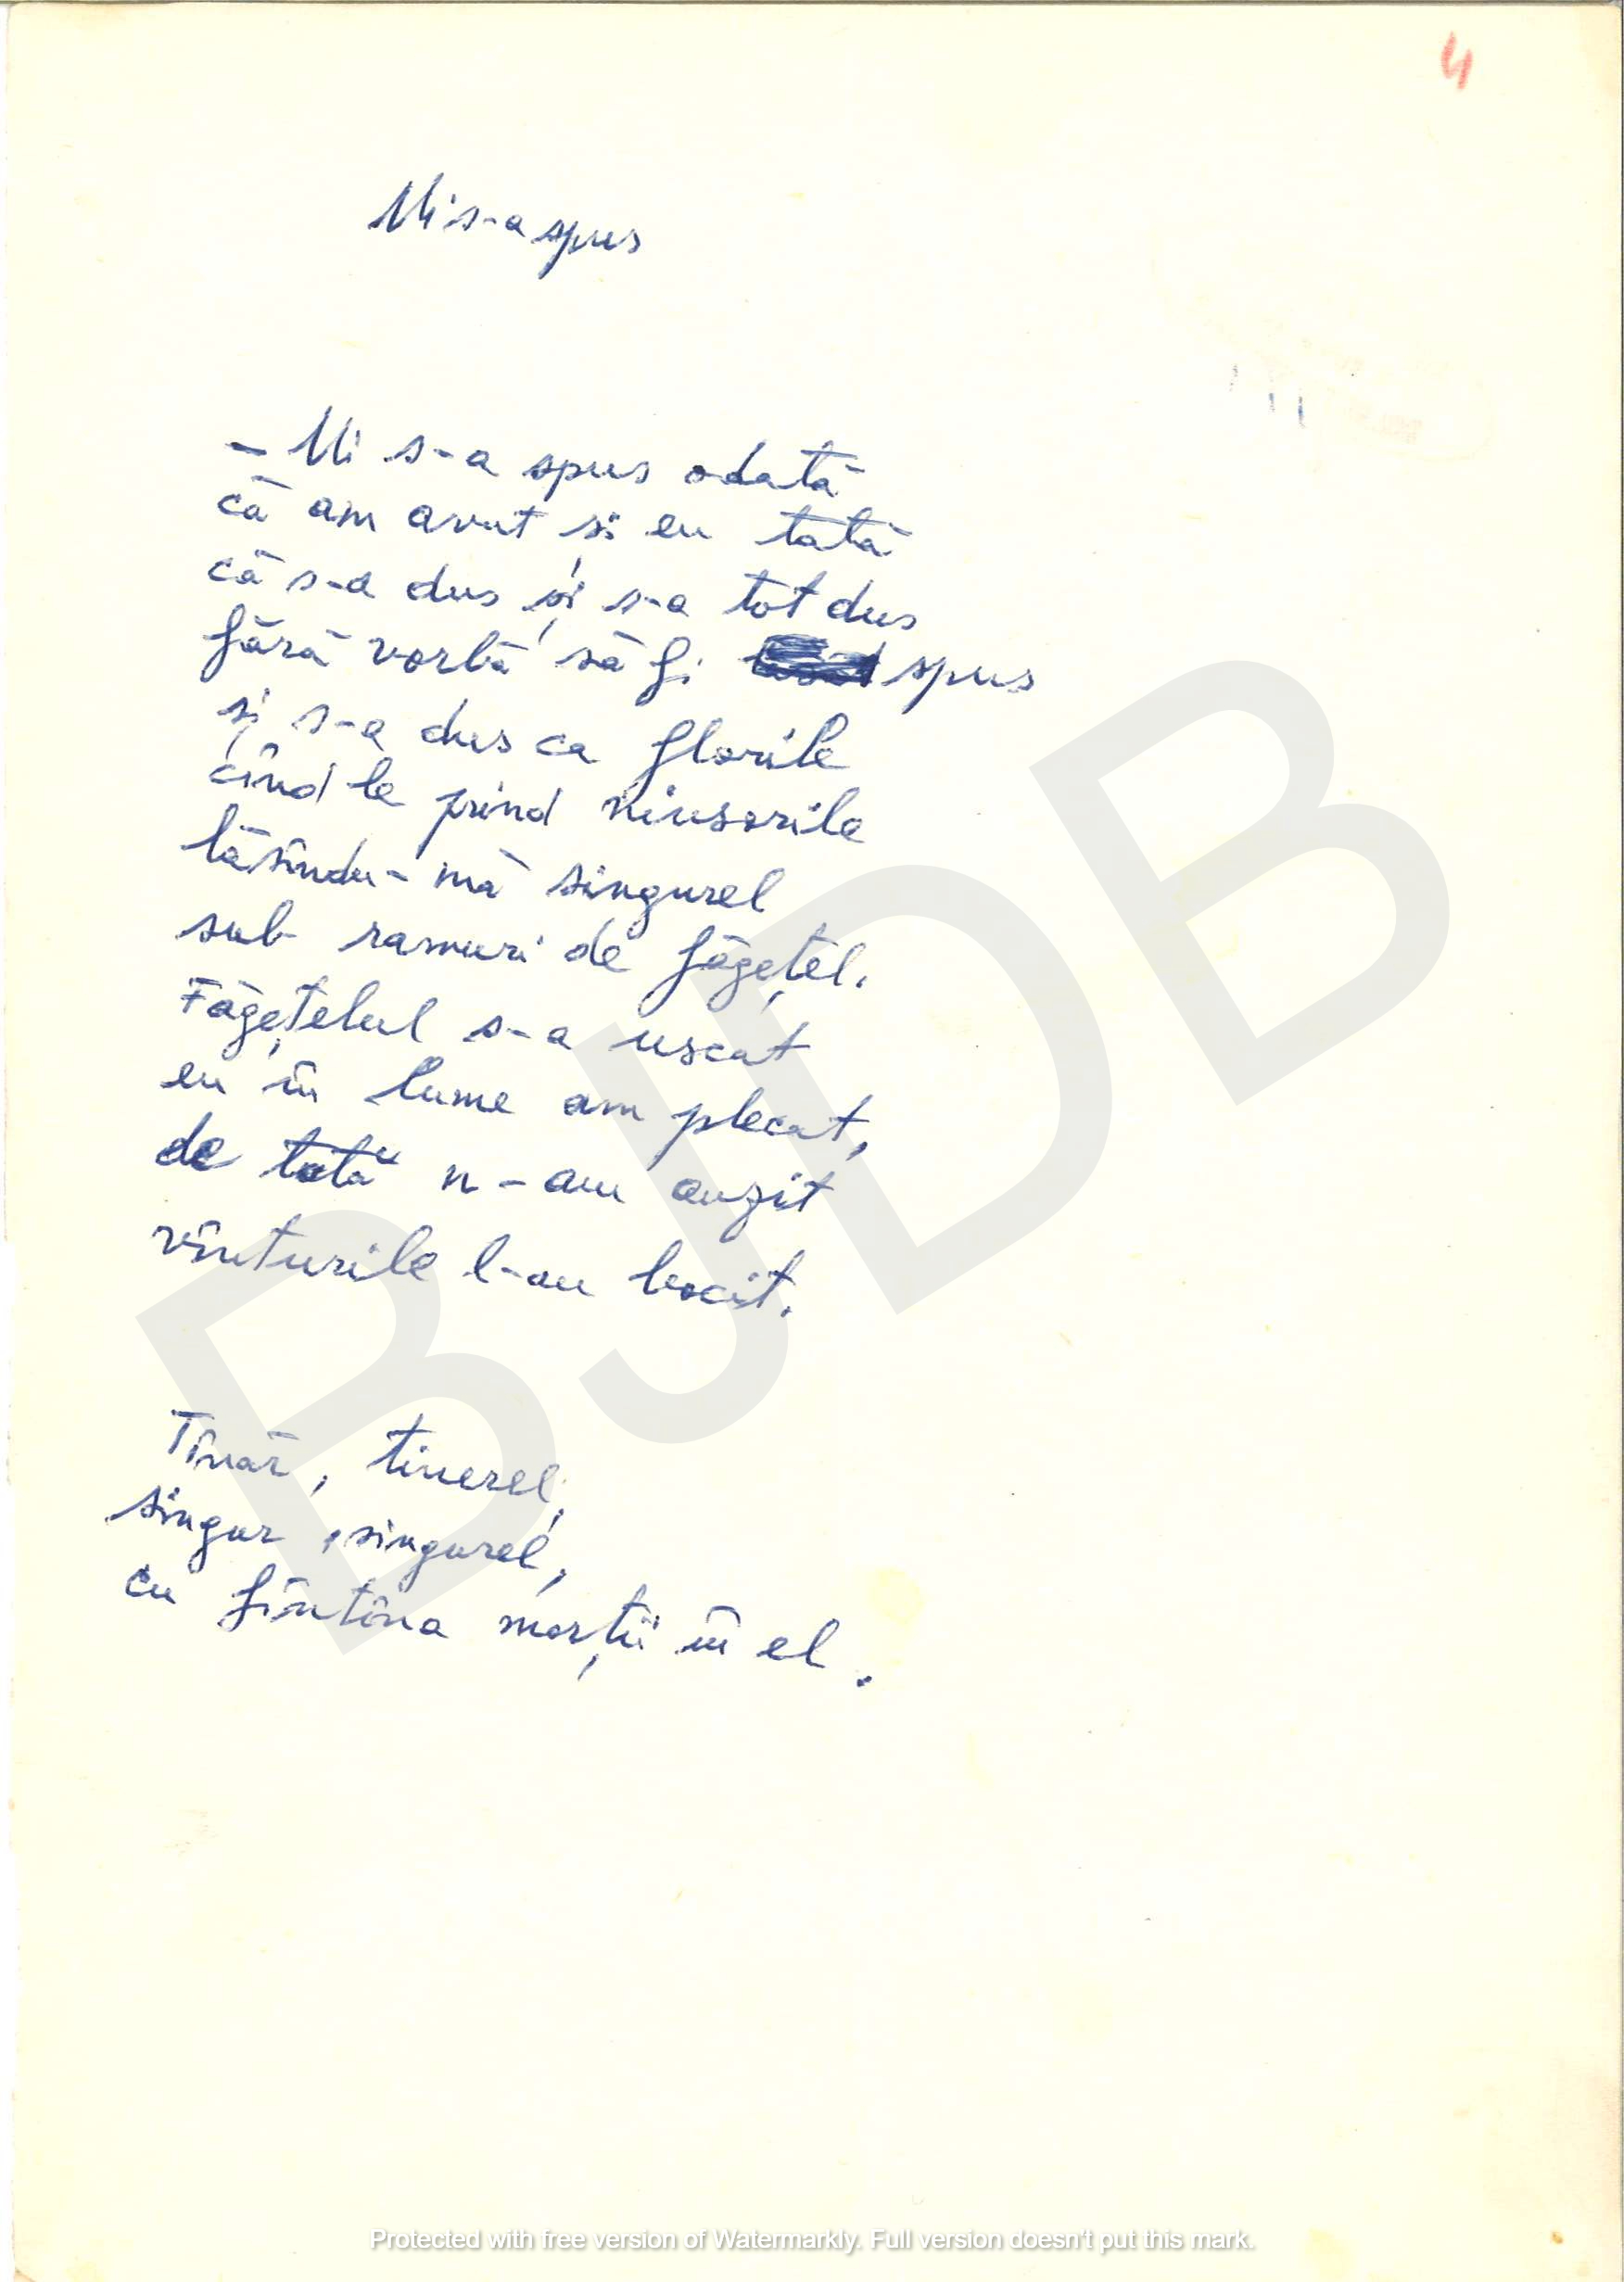 4
Mi s-a spus
- Mi s-a spus odată
că am avut și eu tată
că s-a dus și s-a tot dus
fără vorbă să fi spus
și s-a dus ca florile
cînd le prind ninsorile
lăsîndu-mă singurel
sub ramuri de făgețel.
Făgețelul s-a uscat
eu în lume am plecat,
de tată n-am auzit
vînturile l-au bocit.
Tînăr, tinerel,
singur, singurel,
cu fîntîna morții în el.
BJDB
Protected with free version of Watermarkly. Full version doesn't put this mark.